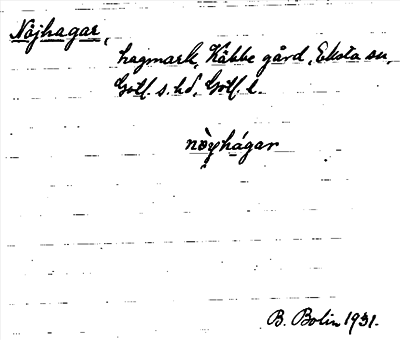 Nöjhagar,
hagmark, Käbbe gård, Eksta sn,
Gotl. s. hd, Gotl. l.
nöyhágar
B. Bolin 1931.